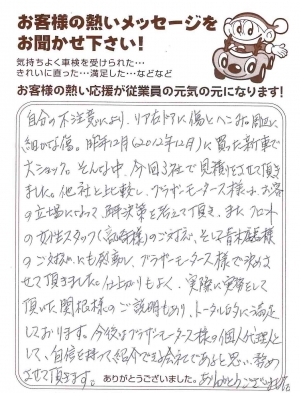 お客様の熱いメッセージを
お聞かせ下さい!
気持ちよく車検を受けられた…
きれいに直った…満足した…などなど
お客様の熱い応援が従業員の元気の元になります!
自分の不注意により、リア右ドアに傷とヘこみ、周辺に
細かな傷。昨年12月(2012年12月)に買った新車で
大ショック。そんな中、今回3社で見積りをさせて頂き
ました。他社と比較し、ブラザーモータース様は、お客
の立場になって、解決策を考えて頂き、また、フロント
の女性スタッフ(高崎様)のご対応、そして青木様
のご対応にも感動し、ブラザーモータース様で決めさ
せて頂きました。仕上がりもよく、実際に実務をして
頂いた関根様のご説明もあり、トータル的に満足
しております。今後はブラザーモータース様の個人代理人と
して、自信を持って紹介できる会社であると思い、努め
させて頂きます。
ありがとうございました。
ありがとうございました